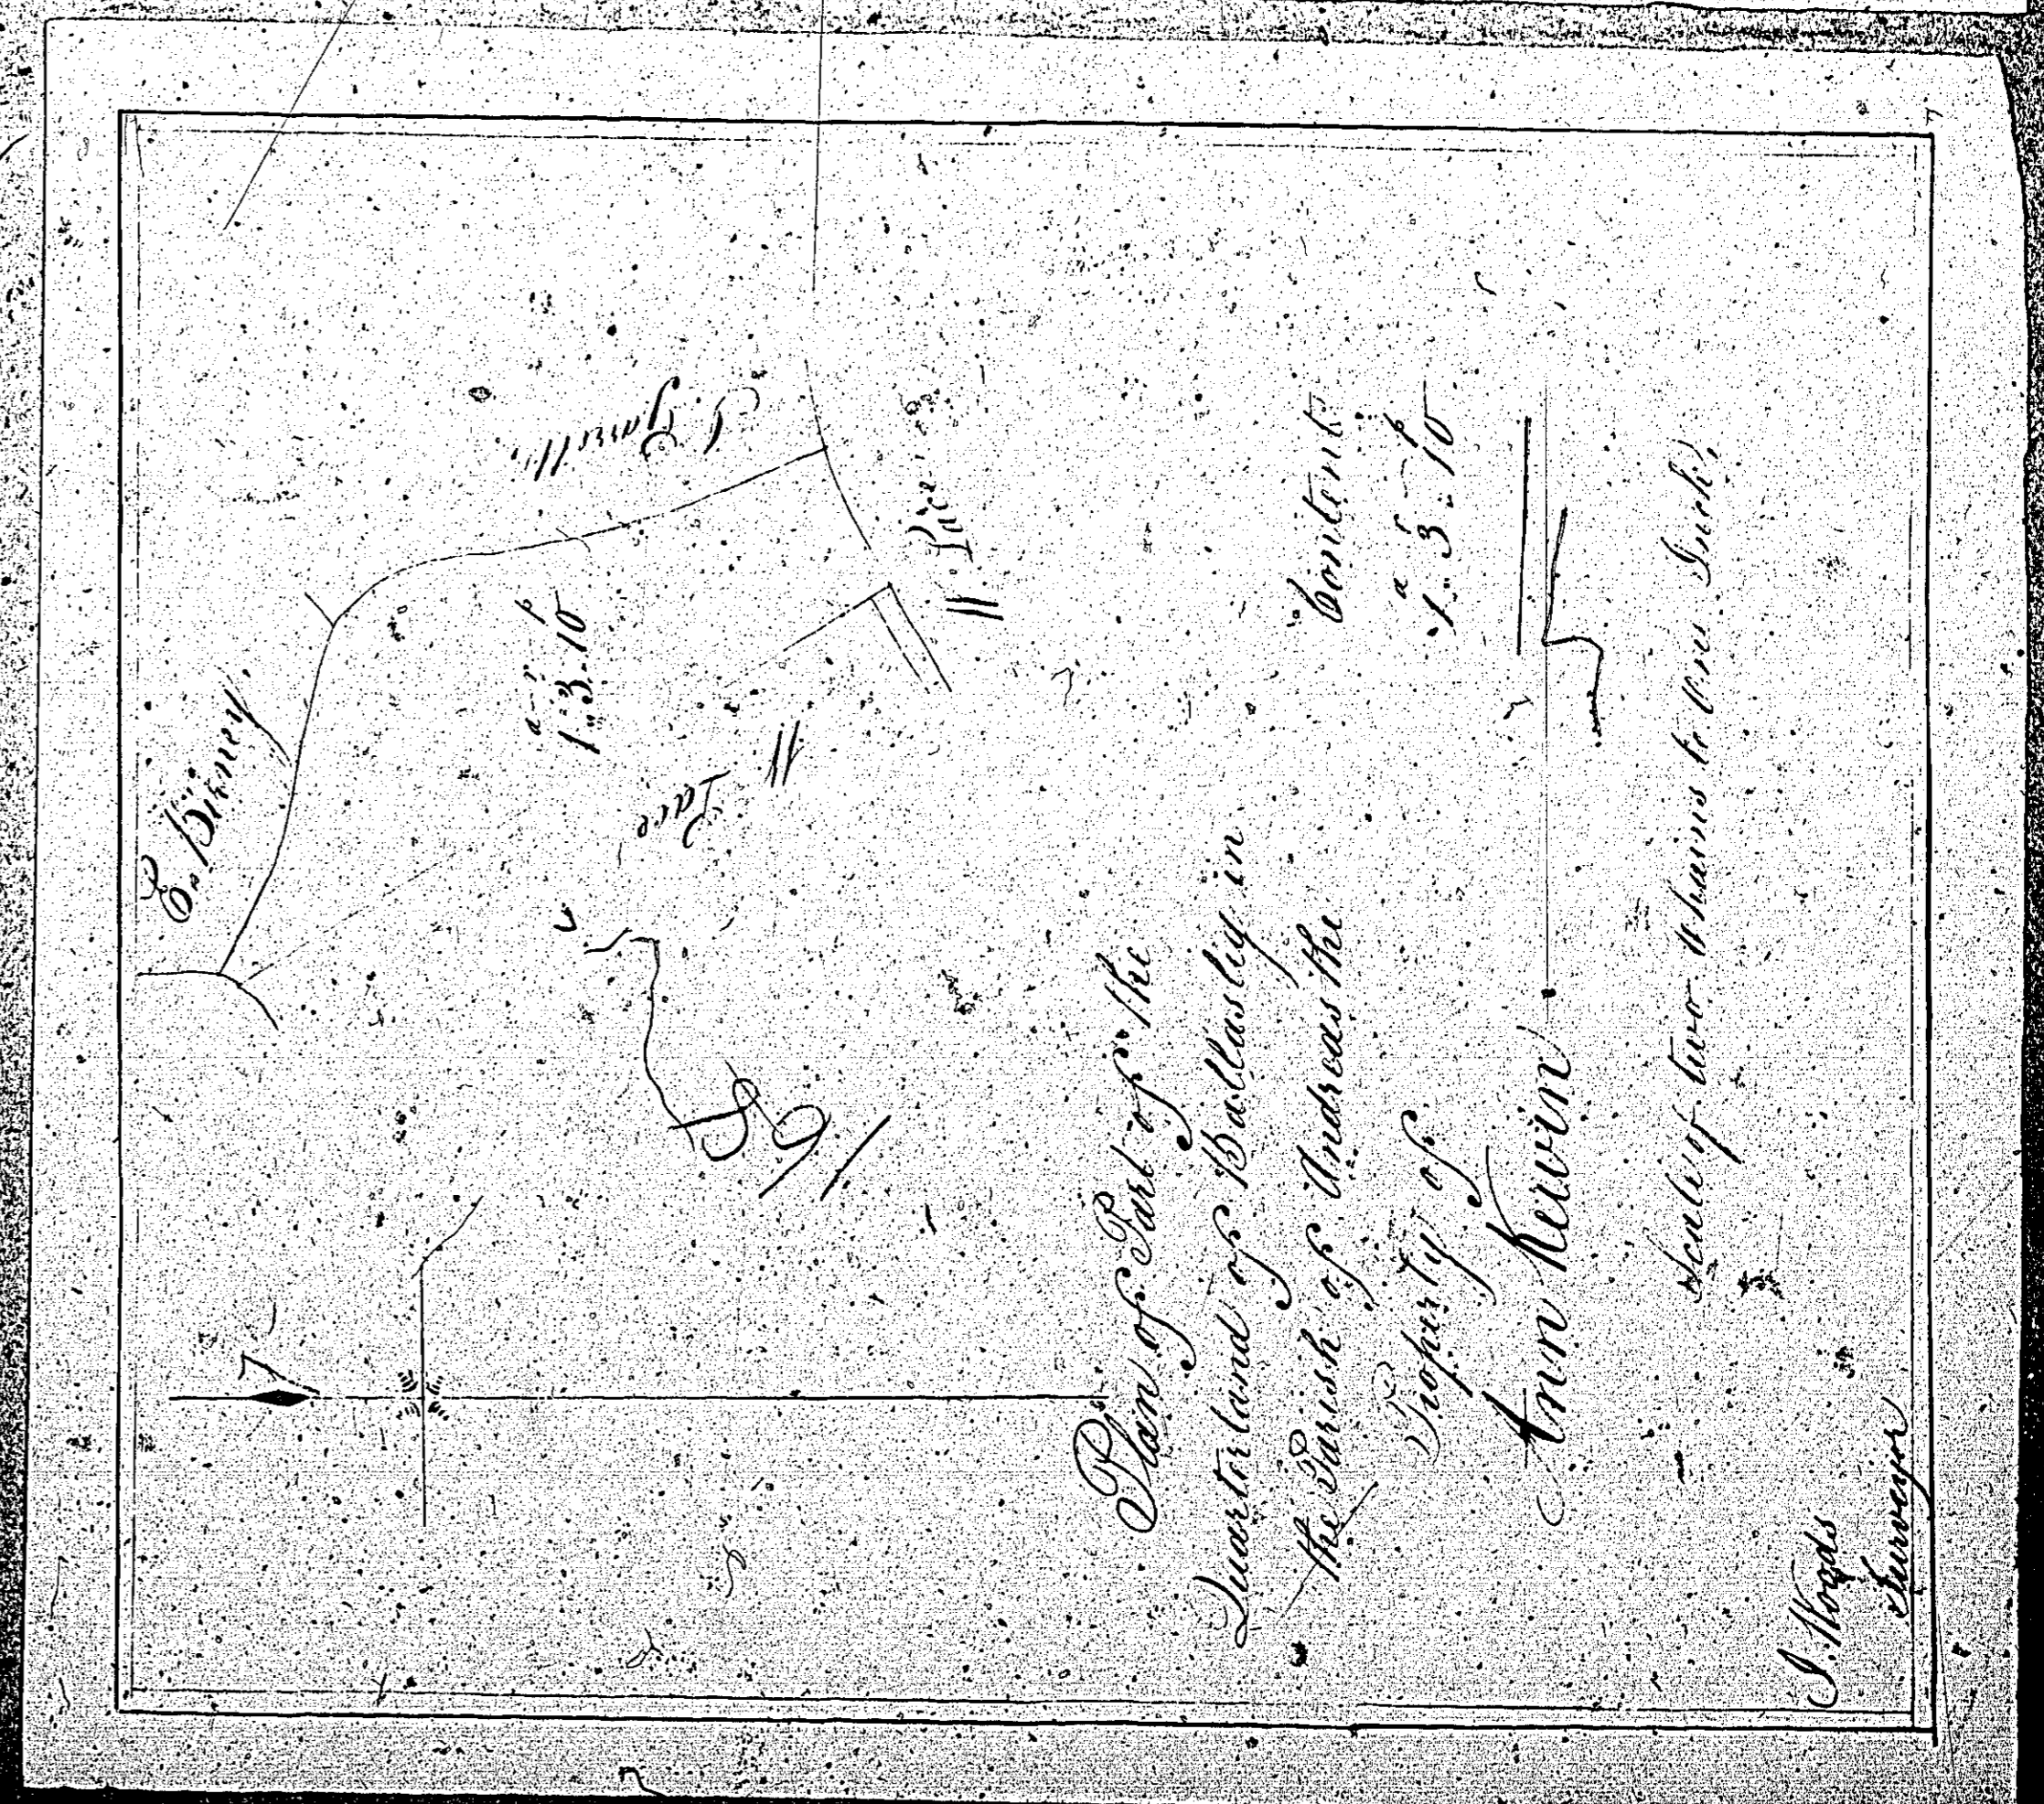 E. Bizney
a r p
1.. 3.. 10
W Pace
W. Pace
Plan of Part of the
Quarterland of Ballasly in
the Parish of Andreas the
Property of
Ann Kewin
Content
a r p
1.. 3.. 10
Scale of two Chains to One Inch,
J. Woods
Surveyor